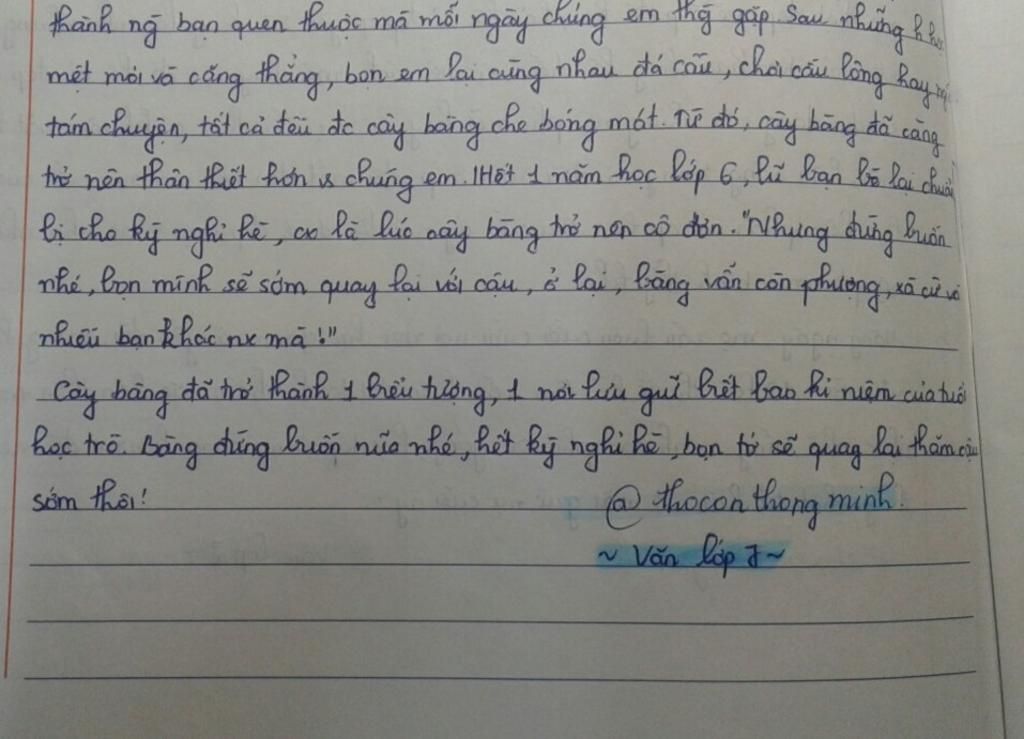 thành ng bạn quen thuộc mà mỗi ngày chúng em thg gặp. Sau những
mệt mỏi và căng thẳng, bọn em lại cùng nhau đá cầu, chơi cầu lông hay
tám chuyện, tất cả đều đc cây bàng che bóng mát. Từ đó, cây bàng đã càng
trở nên thân thiết hơn vs chúng em. Hết 1 năm học lớp 6, lũ bạn bè lại chuẩn
bị cho kỳ nghỉ hè, có là lúc cây bàng trở nên cô đơn. "Nhưng đừng buồn
nhé, bọn mình sẽ sớm quay lại với cậu, ở lại, bàng vẫn còn phượng, xà cừ và
nhiều bạn khác nx mà!"
Cây bàng đã trở thành 1 biểu tượng, 1 nơi lưu giữ biết bao kỉ niệm của tuổi
học trò. Bàng đừng buồn nữa nhé, hết kỳ nghỉ hè, bọn tớ sẽ quay lại thăm cậu
sớm thôi!
@ thocon thong minh.
~ Văn lớp 7 ~